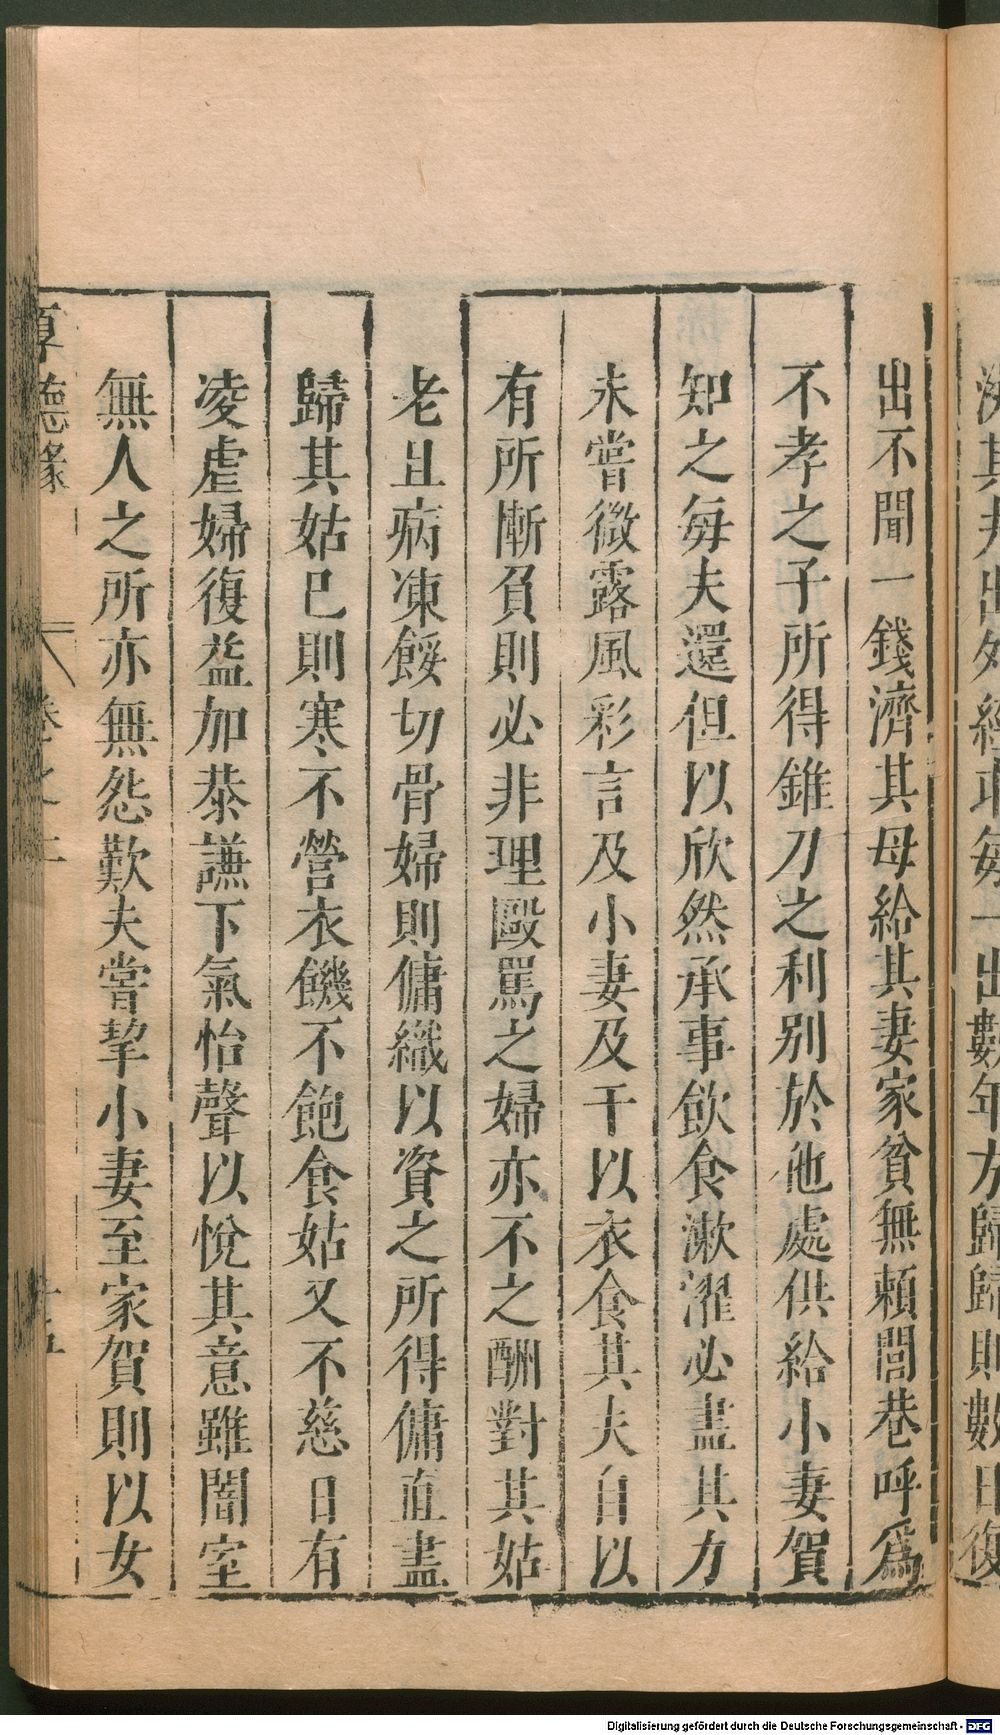 出不聞一錢濟其母給其妻家貧無賴閭巷呼爲
不孝之子所得錐刀之利别於他處供給小妻賀
知之每夫還但以欣然承事飲食漱濯必盡其力
未嘗微露風彩言及小妻及干以衣食其夫自以
有所慚負則必非理毆罵之婦亦不之酬對其姑
老且病凍餒切骨婦則傭織以資之所得傭直盡
歸其姑已則寒不營衣饑不飽食姑又不慈日有
凌虐婦復益加恭謙下氣怡聲以悅其意雖闇室
無人之所亦無怨歎夫嘗挈小妻至家賀則以女
Digitalisierung gefördert durch die Deutsche Forschungsgemeinschaft - DFG